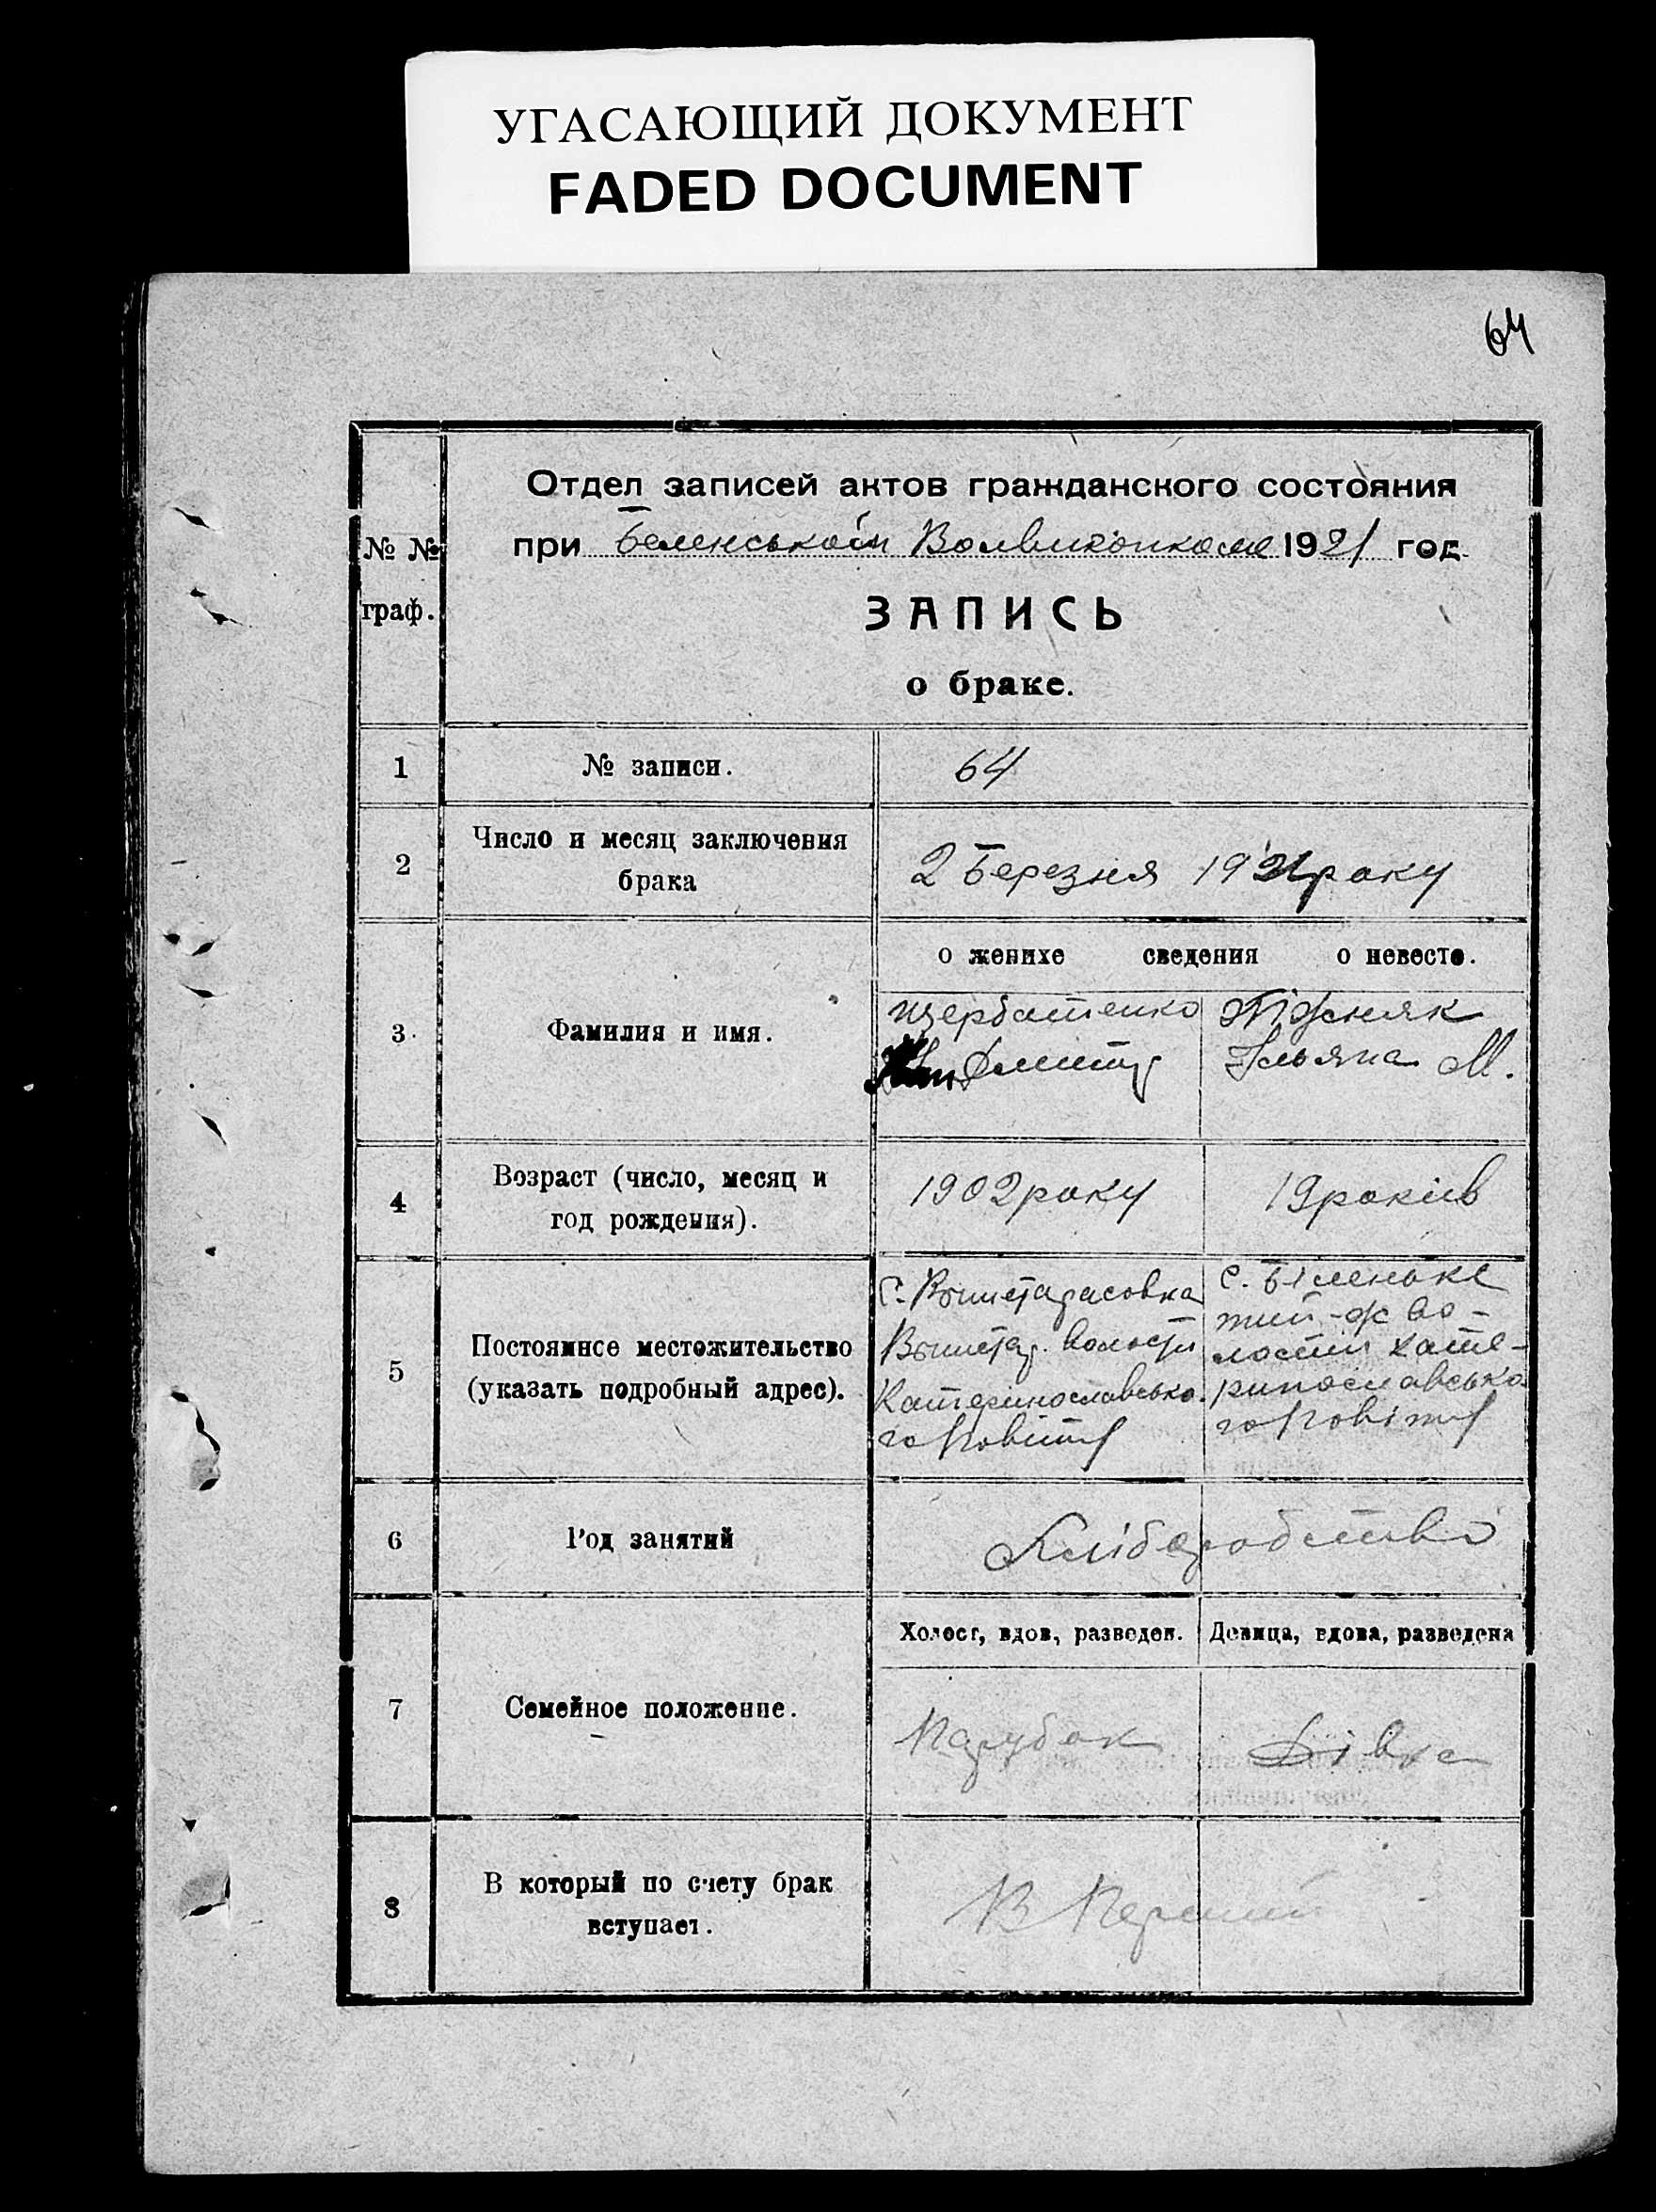 УГАСАЮЩИЙ ДОКУМЕНТ
FADED DOCUMENT
64
№ №
граф.
Отдел записей актов гражданского состояния
при Беленськом Волвиконкоме 1921 год
ЗАПИСЬ
о браке.
1
№ записи.
64
2
Число и месяц заключения
брака
2 Березня 1921 року
о женихе сведения о невесте.
3
Фамилия и имя.
Щербатенко
Дмитр
Піжняк
Ульяна М.
4
Возраст (число, месяц и
год рождения).
1902 року
19 років
5
Постоянное местожительство
(указать подробный адрес).
С. Вышетарасовка
Вышетар. волости
Катеринославсько-
го Повіту
с. Біленьке
тий-ж во-
лости Кате-
ринославсько-
го Повіту
6
Род занятий
Хліборобство
7
Семейное положение.
Холост, вдов, разведен.
Девица, вдова, разведена
Парубок
Дівка
8
В который по счету брак
вступает.
В Перший